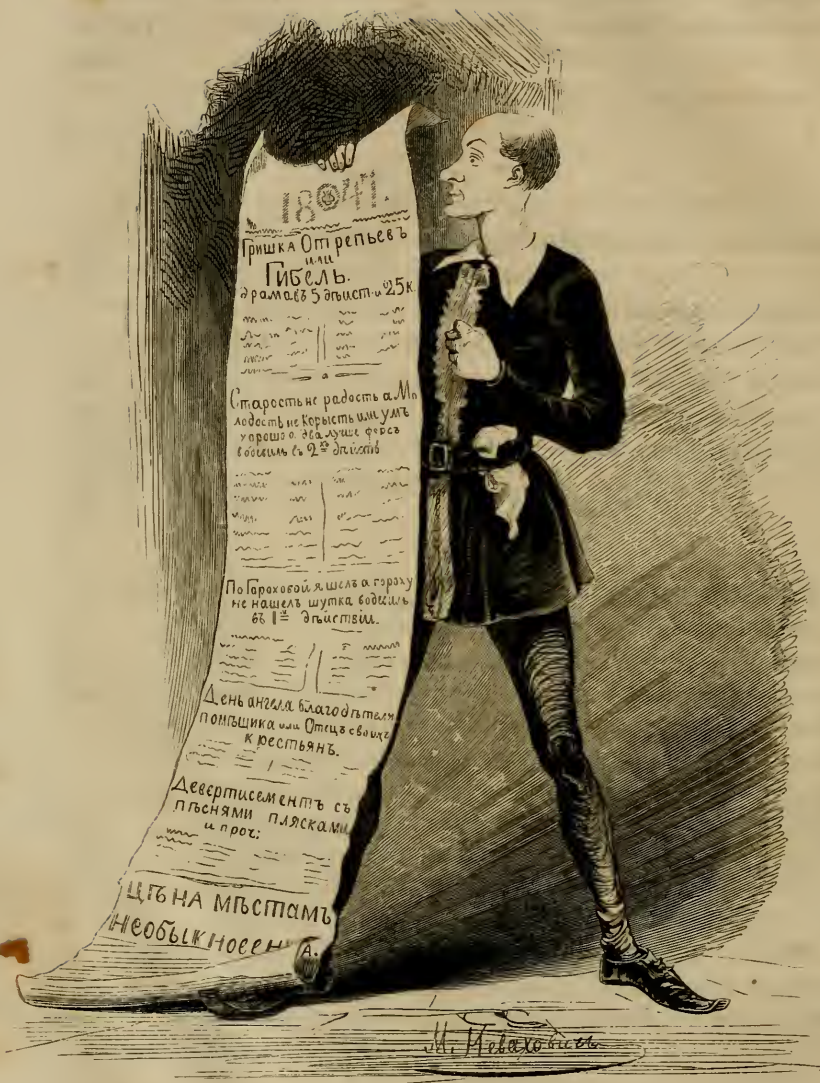 1847.
Гришка Отрепьевъ
или
Гибель.
драма въ 5 дѣист. и 25 к.
Старость не радость а Мо
лодость не Корысть или умъ
хорошо а два лучше фарсъ
водевиль въ 2хъ дѣйств
По Гороховой я шелъ а гороху
не нашелъ шутка водевиль
въ 1мъ дѣйствіи.
День ангела благодѣтеля
помѣщика или Отецъ своихъ
крестьянъ.
Девертисементъ съ
пѣснями плясками
и проч:
ЦѢНА МѢСТАМЪ
Необыкновен
А.
М. Неваховичъ